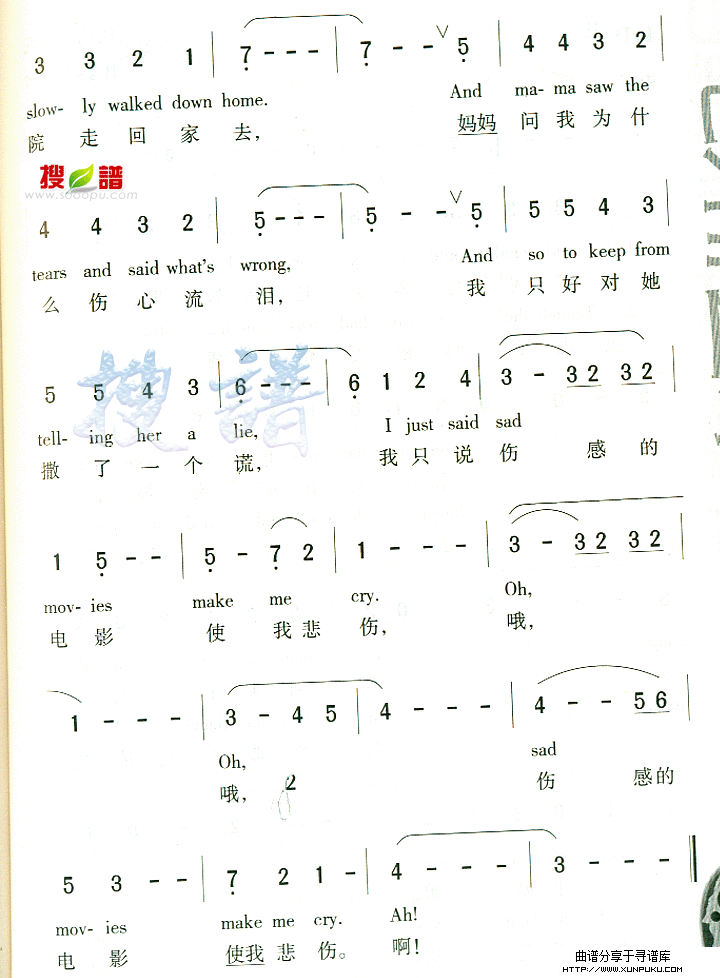 3 3 2 1 | 7 - - - | 7 - - ∨ 5 | 4 4 3 2 |
slow- ly walked down home. And ma- ma saw the
院 走 回 家 去, 妈妈 问 我 为 什
搜 譜
www.sooopu.com
4 4 3 2 | 5 - - - | 5 - - ∨ 5 | 5 5 4 3 |
tears and said what's wrong, And so to keep from
么 伤 心 流 泪, 我 只 好 对 她
5 5 4 3 | 6 - - - | 6 1 2 4 | 3 - 32 32 |
搜 譜
tell- ing her a lie, I just said sad
撒 了 一 个 谎, 我 只 说 伤 感 的
1 5 - - | 5 - 7 2 | 1 - - - | 3 - 32 32 |
mov- ies make me cry. Oh,
电 影 使 我 悲 伤, 哦,
1 - - - | 3 - 4 5 | 4 - - - | 4 - - 56 |
Oh, sad
哦, 2 伤 感 的
5 3 - - | 7 2 1 - | 4 - - - | 3 - - - ‖
mov- ies make me cry. Ah!
电 影 使我 悲 伤。 啊!
曲谱分享于寻谱库
HTTP://WWW.XUNPUKU.COM